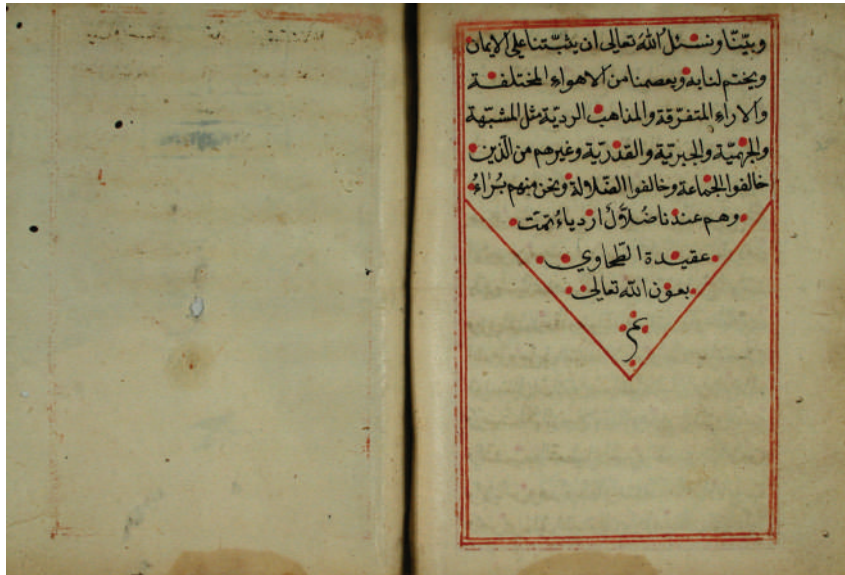 وبيّنّا ونسئل الله تعالى ان يثبّتنا على الايمان
ويختم لنا به ويعصمنا من الاهواء المختلفة
والاراء المتفرّقة والمذاهب الرديّة مثل المشبّهة
والجهميّة والجبريّة والقدريّة وغيرهم من الّذين
خالفوا الجماعة وخالفوا الضّلالة ونحن منهم بُراءُ
وهم عندنا ضُلاّلٌ اردياءُ تمّت
عقيدة الطّحاوي
بعون الله تعالى